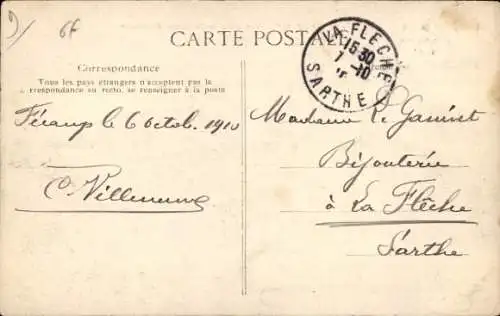 6f
CARTE POSTALE
LA FLECHE
15 30
7 -10
SARTHE
Correspondance
Tous les pays étrangers n'acceptent pas la
correspondance au recto, se renseigner à la poste
Fécamp le 6 octob. 1910
C. Villeneuve
Madame Le
Bijouterie
à La Flèche
Sarthe